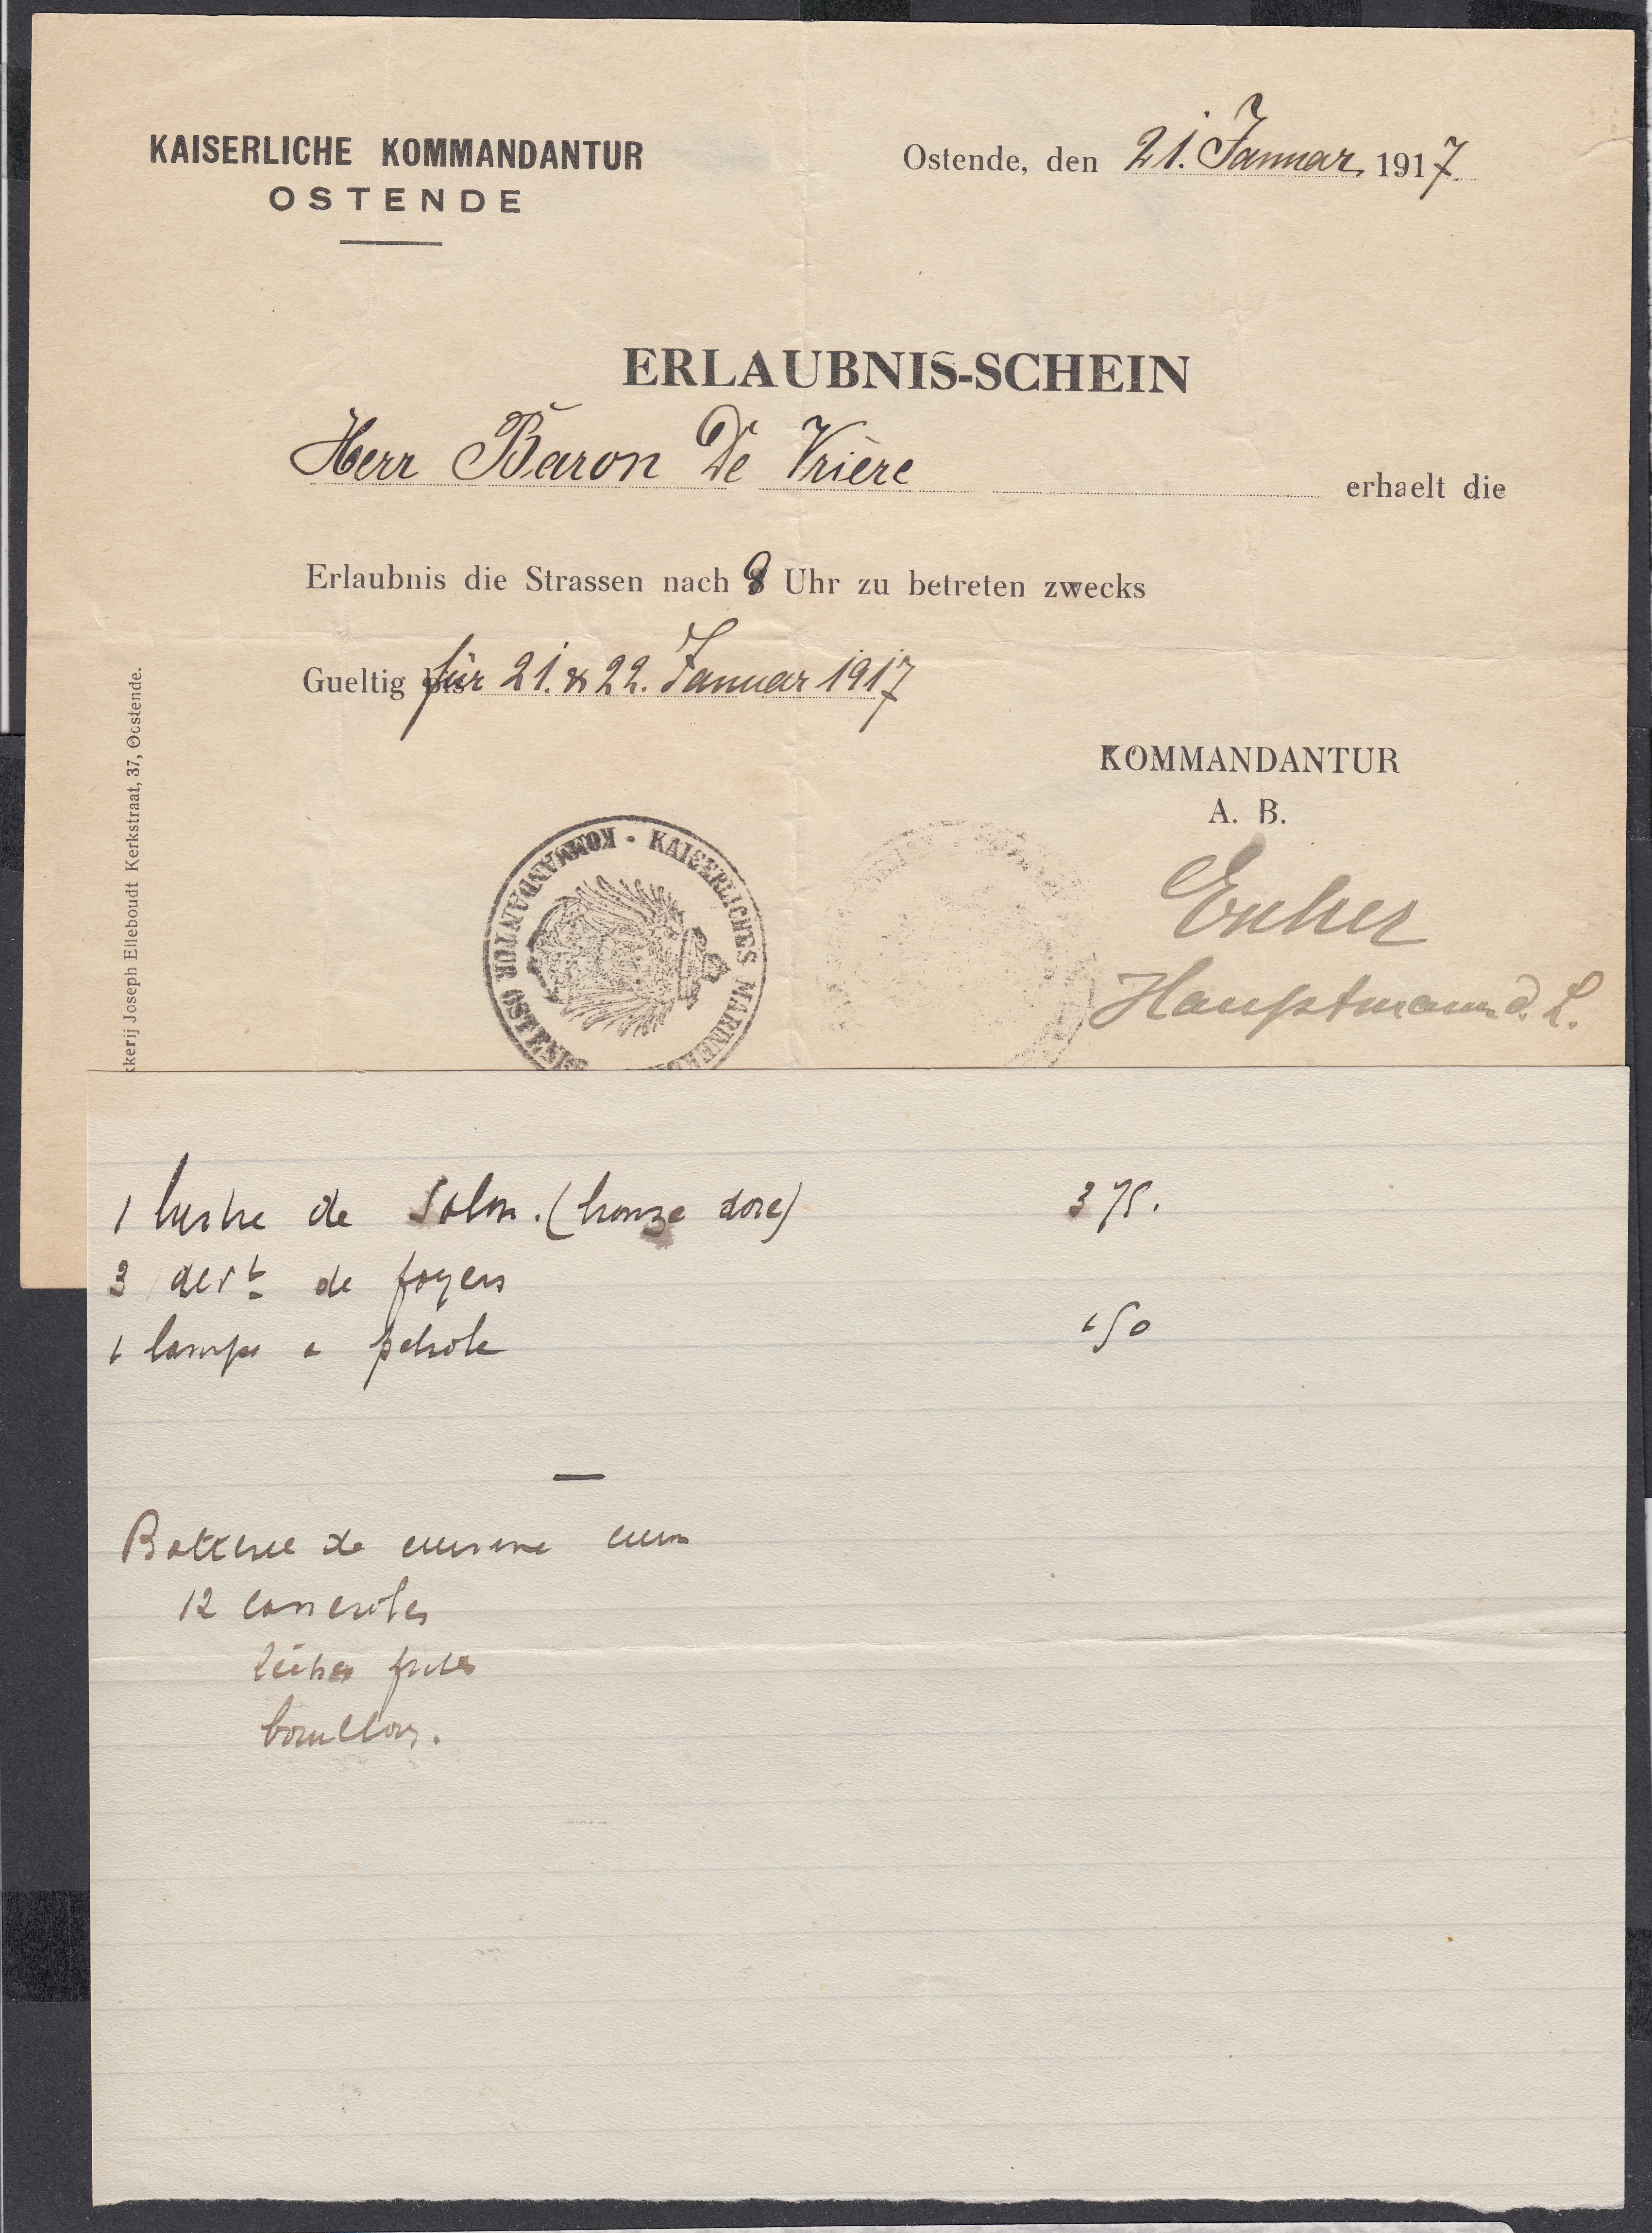 KAISERLICHE KOMMANDANTUR
OSTENDE
Ostende, den 21. Januar 1917.
ERLAUBNIS-SCHEIN
Herr Baron De Vrière erhaelt die
Erlaubnis die Strassen nach 9 Uhr zu betreten zwecks
Gueltig für 21. & 22. Januar 1917
KOMMANDANTUR
A. B.
Hauptmann d. L.
KAISERLICHES MARINE
KOMMANDANTUR OSTENDE
kkerij Joseph Elleboudt Kerkstraat, 37, Oostende.
1 lustre de Salon. (bronze doré) 375.
3 devt de foyers
1 lampe a petrole 150
Batterie de cuisine cuivre
12 casseroles
lèches frites
bouillons.